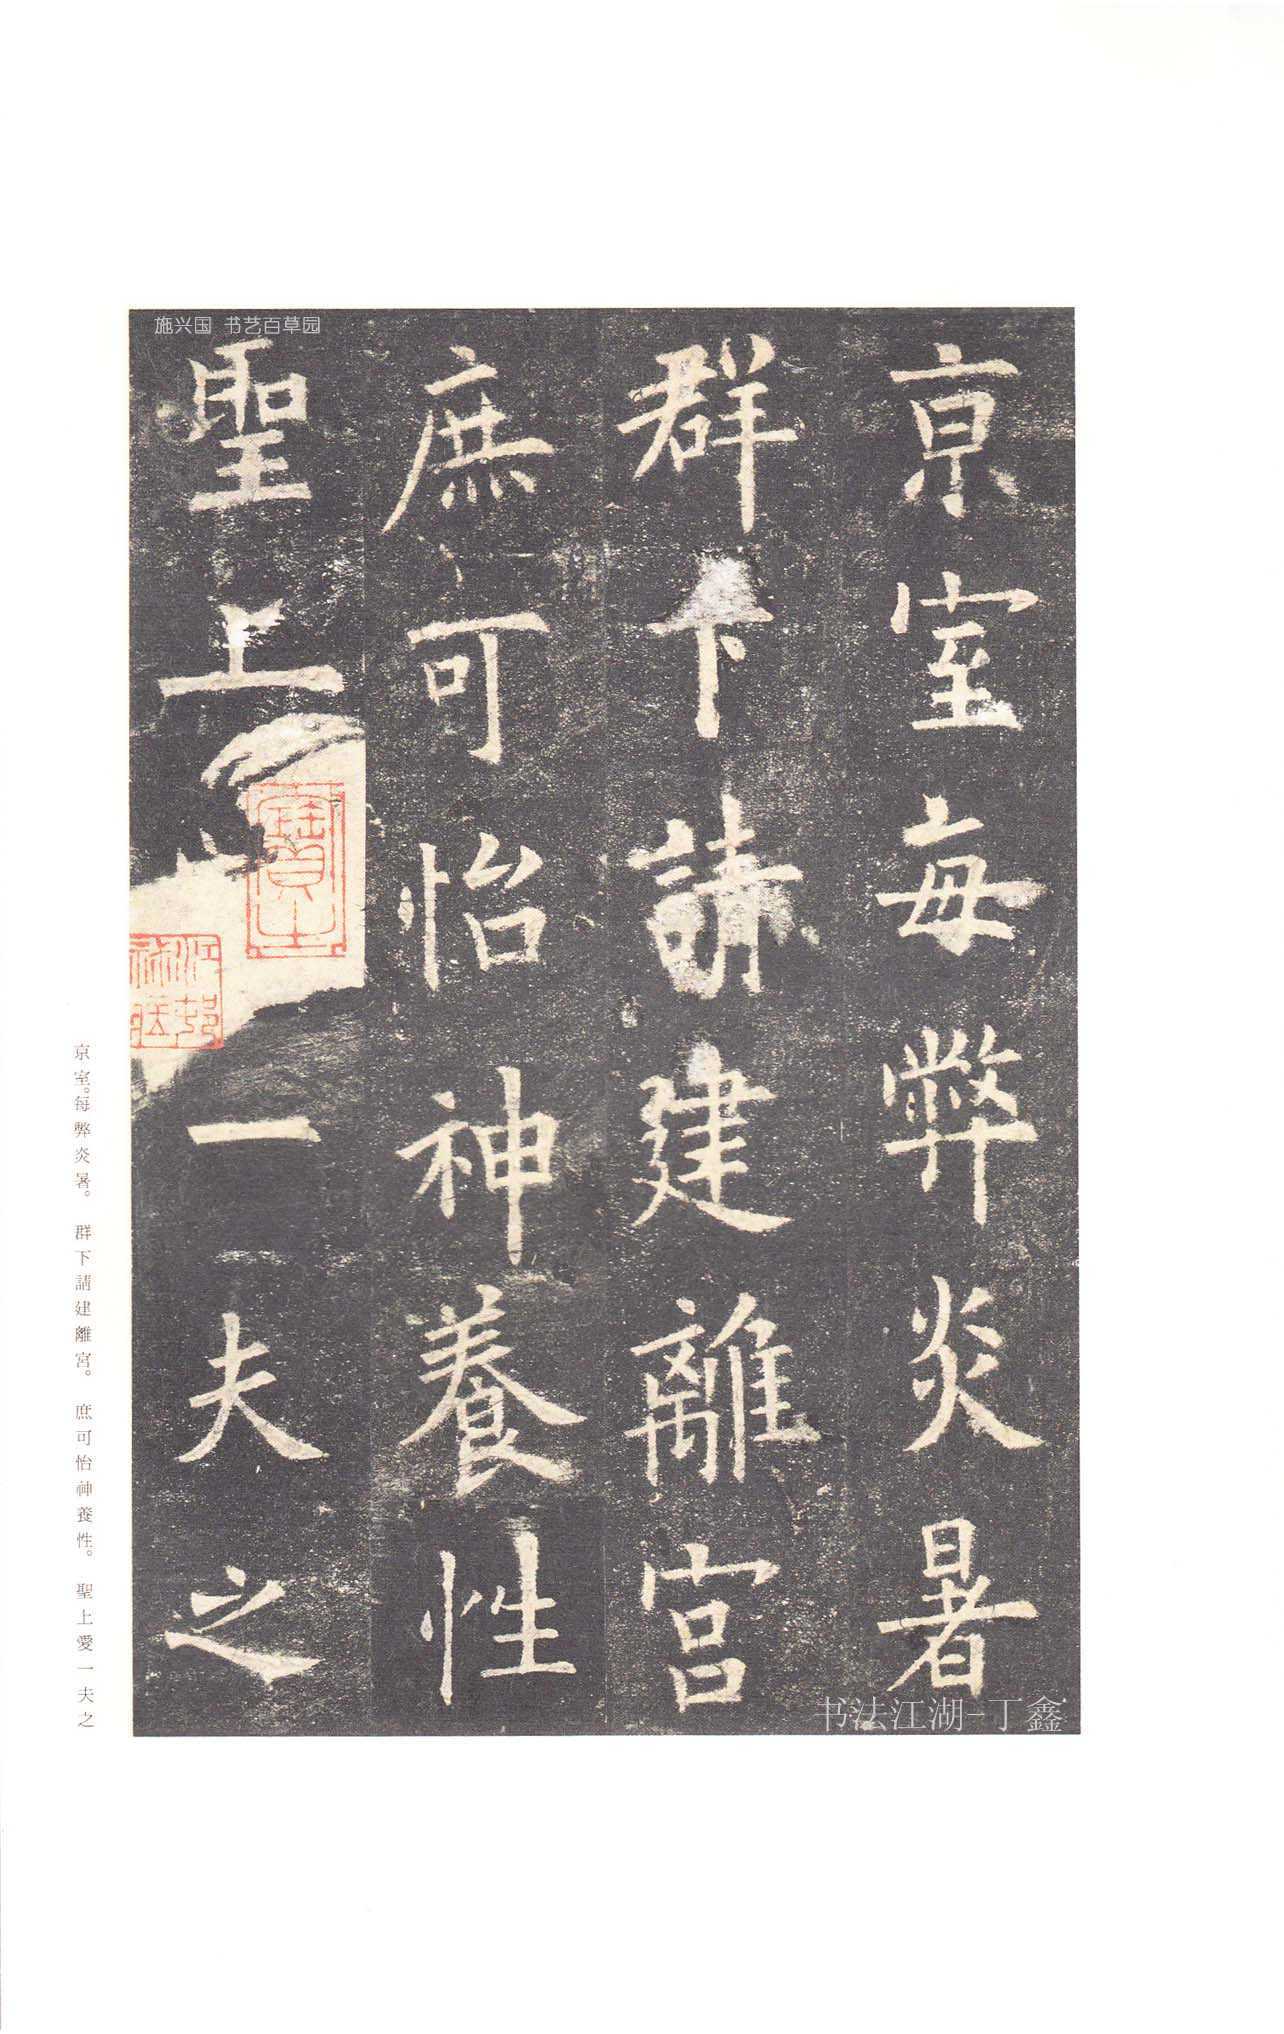 施兴国 书艺百草园
京室每弊炎暑
群下請建離宮
庶可怡神養性
聖上一夫之
京室。每弊炎暑。 群下請建離宮。 庶可怡神養性。 聖上愛一夫之
书法江湖-丁鑫